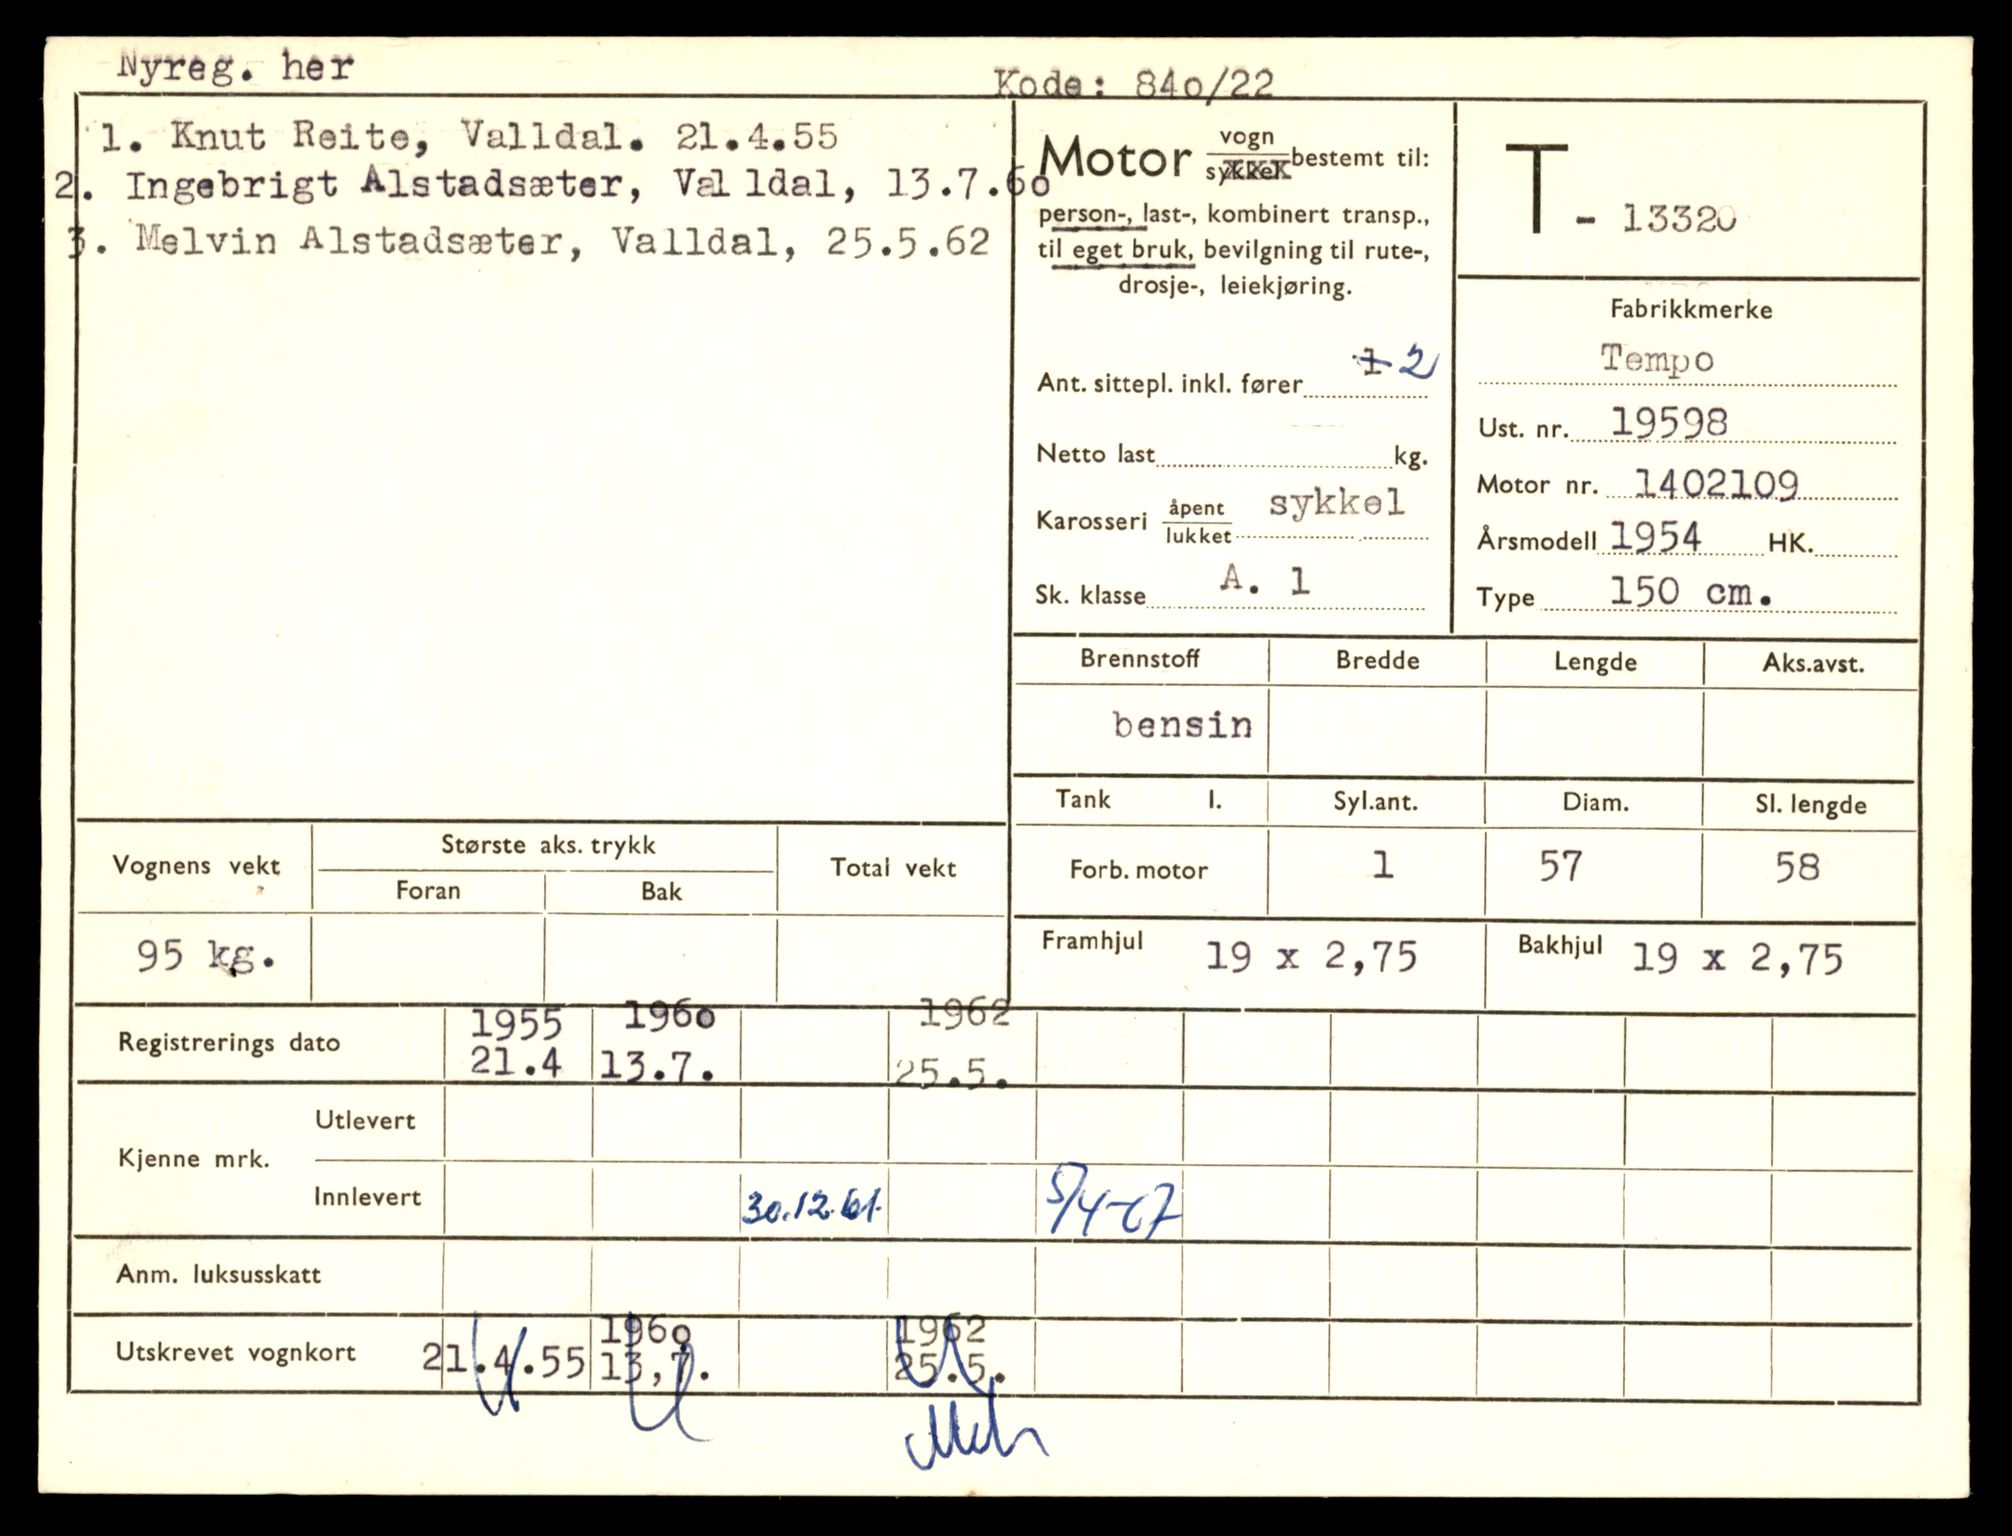 Nyreg. her
Kode: 84o/22
1. Knut Reite, Valldal. 21.4.55
2. Ingebrigt Alstadsæter, Valldal, 13.7.6o
3. Melvin Alstadsæter, Valldal, 25.5.62
Motor vogn bestemt til:
sykkel
person-, last-, kombinert transp.,
til eget bruk, bevilgning til rute-,
drosje-, leiekjøring.
Ant. sittepl. inkl. fører 1 2
Netto last kg.
Karosseri åpent sykkel
lukket
Sk. klasse A. 1
T - 13320
Fabrikkmerke
Tempo
Ust. nr. 19598
Motor nr. 1402109
Årsmodell 1954 HK.
Type 150 cm.
Brennstoff Bredde Lengde Aks.avst.
bensin
Tank l. Syl.ant. Diam. Sl. lengde
Forb. motor 1 57 58
Framhjul 19 x 2,75 Bakhjul 19 x 2,75
Vognens vekt Største aks. trykk Total vekt
Foran Bak
95 kg.
1955 196o 1962
Registrerings dato
21.4 13.7. 25.5.
Utlevert
Kjenne mrk.
Innlevert 30.12.61. 5/4-67
Anm. luksusskatt
196o 1962
Utskrevet vognkort 21.4.55 13,7. 25.5.